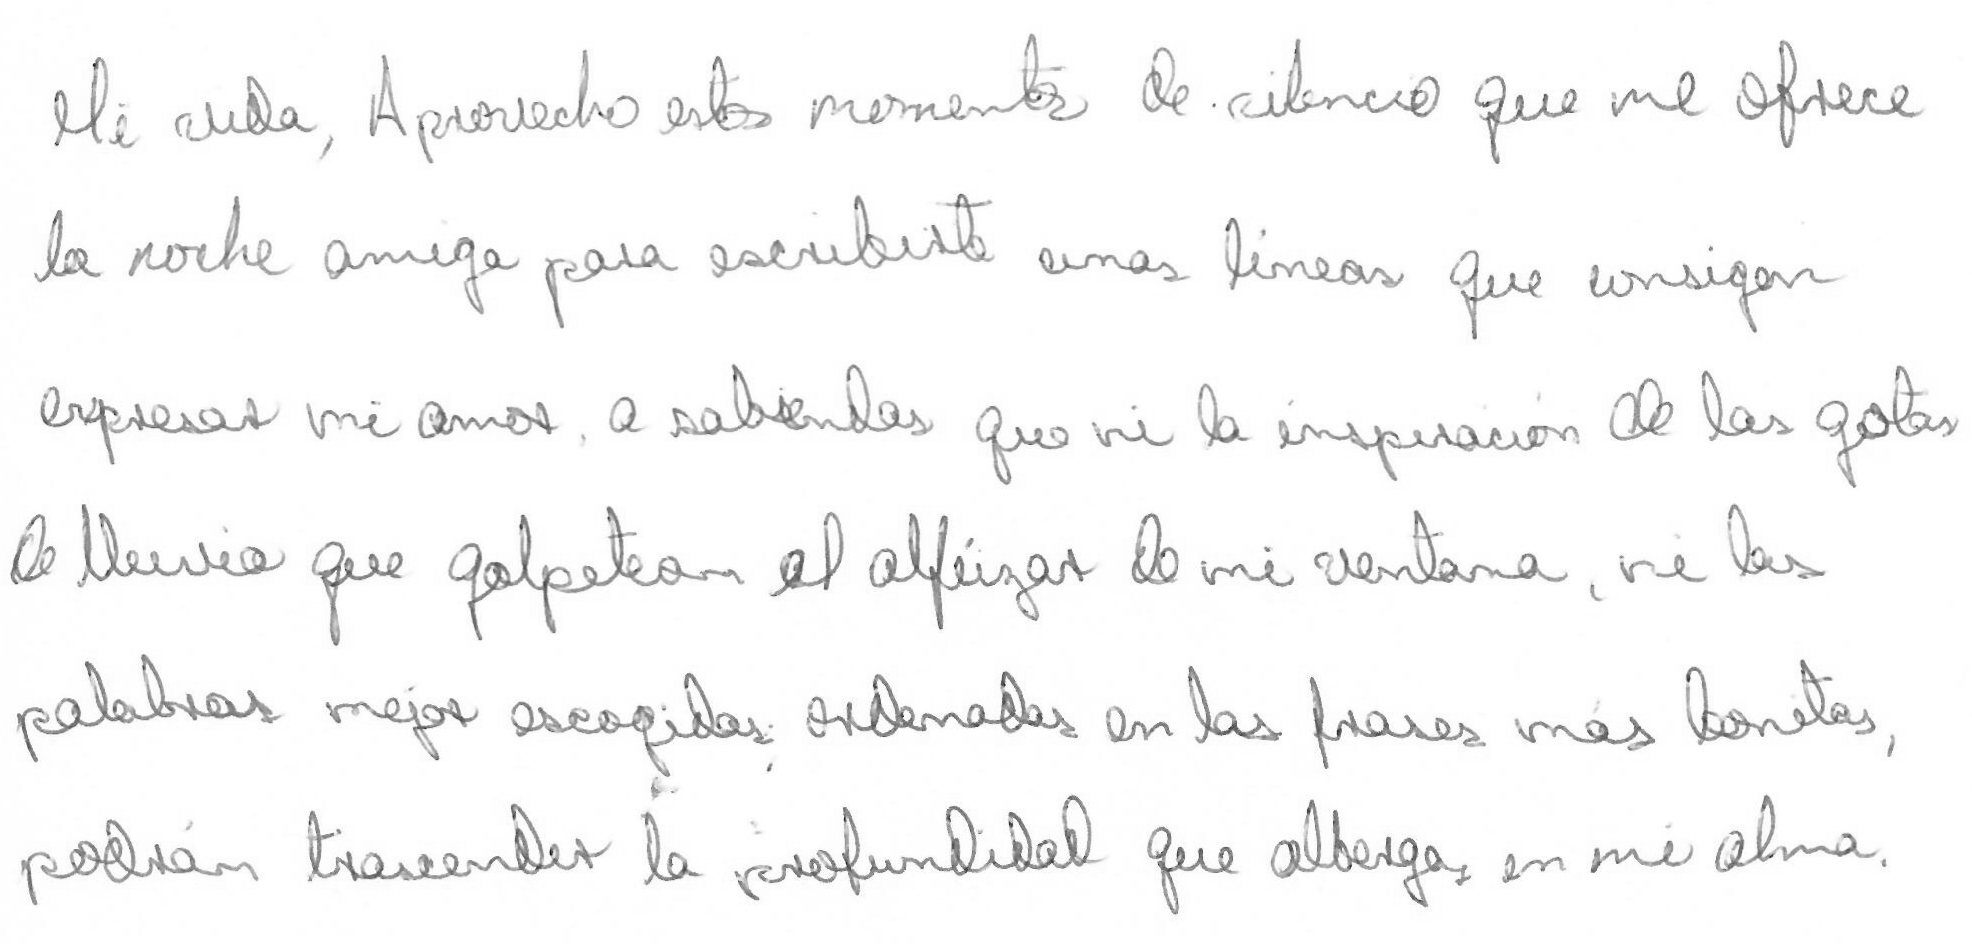 Mi vida, Aprovecho estos momentos de silencio que me ofrece
la noche amiga para escribirte unas líneas que consigan
expresar mi amor, a sabiendas que ni la inspiración de las gotas
de lluvia que golpetean el alféizar de mi ventana, ni las
palabras mejor escogidas, ordenadas en las frases más bonitas,
podrán trascender la profundidad que albergas en mi alma.